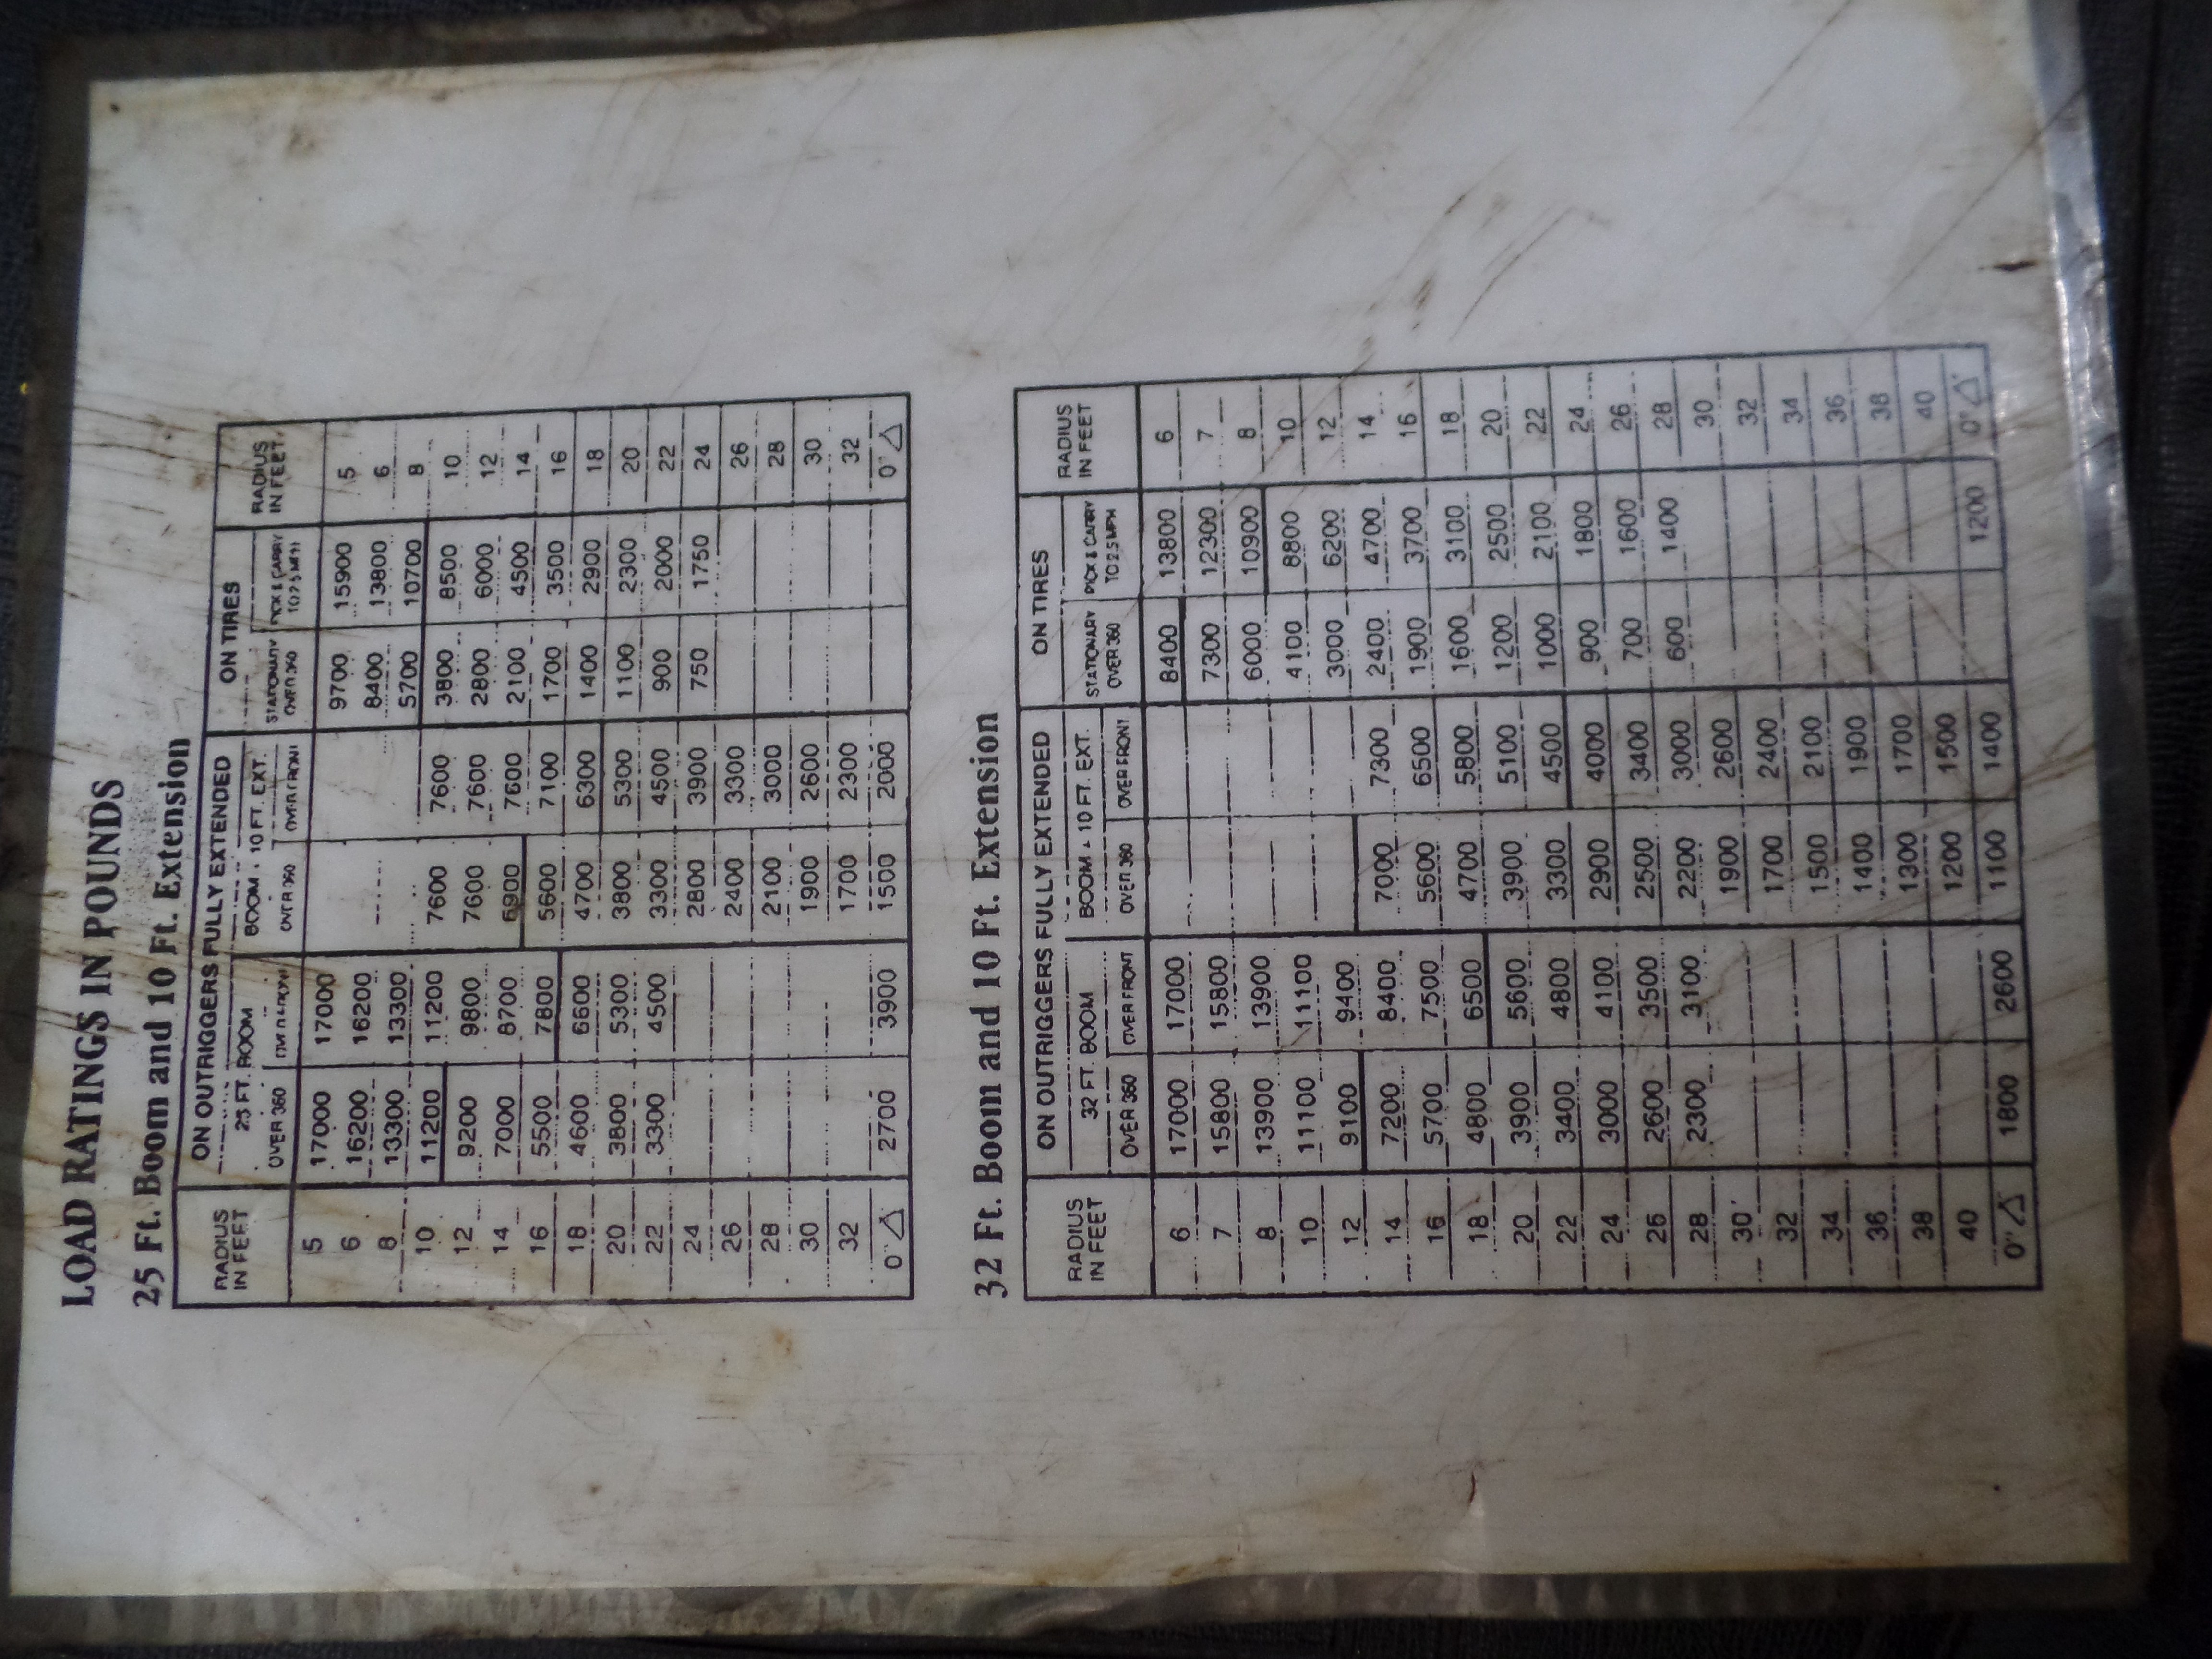 LOAD RATINGS IN POUNDS
25 Ft. Boom and 10 Ft. Extension
RADIUS IN FEET ON OUTRIGGERS FULLY EXTENDED ON TIRES RADIUS IN FEET
25 FT. BOOM BOOM + 10 FT. EXT. STATIONARY OVER 360 PICK & CARRY TO 2.5 MPH
OVER 360 OVER FRONT OVER 360 OVER FRONT
5 17000 17000 9700 15900 5
6 16200 16200 8400 13800 6
8 13300 13300 5700 10700 8
10 11200 11200 7600 7600 3800 8500 10
12 9200 9800 7600 7600 2800 6000 12
14 7000 8700 6900 7600 2100 4500 14
16 5500 7800 5600 7100 1700 3500 16
18 4600 6600 4700 6300 1400 2900 18
20 3800 5300 3800 5300 1100 2300 20
22 3300 4500 3300 4500 900 2000 22
24 2800 3900 750 1750 24
26 2400 3300 26
28 2100 3000 28
30 1900 2600 30
32 1700 2300 32
0° △ 2700 3900 1500 2000 0° △
32 Ft. Boom and 10 Ft. Extension
RADIUS IN FEET ON OUTRIGGERS FULLY EXTENDED ON TIRES RADIUS IN FEET
32 FT. BOOM BOOM + 10 FT. EXT. STATIONARY OVER 360 PICK & CARRY TO 2.5 MPH
OVER 360 OVER FRONT OVER 360 OVER FRONT
6 17000 17000 8400 13800 6
7 15800 15800 7300 12300 7
8 13900 13900 6000 10900 8
10 11100 11100 4100 8800 10
12 9100 9400 3000 6200 12
14 7200 8400 7000 7300 2400 4700 14
16 5700 7500 5600 6500 1900 3700 16
18 4800 6500 4700 5800 1600 3100 18
20 3900 5600 3900 5100 1200 2500 20
22 3400 4800 3300 4500 1000 2100 22
24 3000 4100 2900 4000 900 1800 24
26 2600 3500 2500 3400 700 1600 26
28 2300 3100 2200 3000 600 1400 28
30 1900 2600 30
32 1700 2400 32
34 1500 2100 34
36 1400 1900 36
38 1300 1700 38
40 1200 1500 40
0° △ 1800 2600 1100 1400 1200 0° △